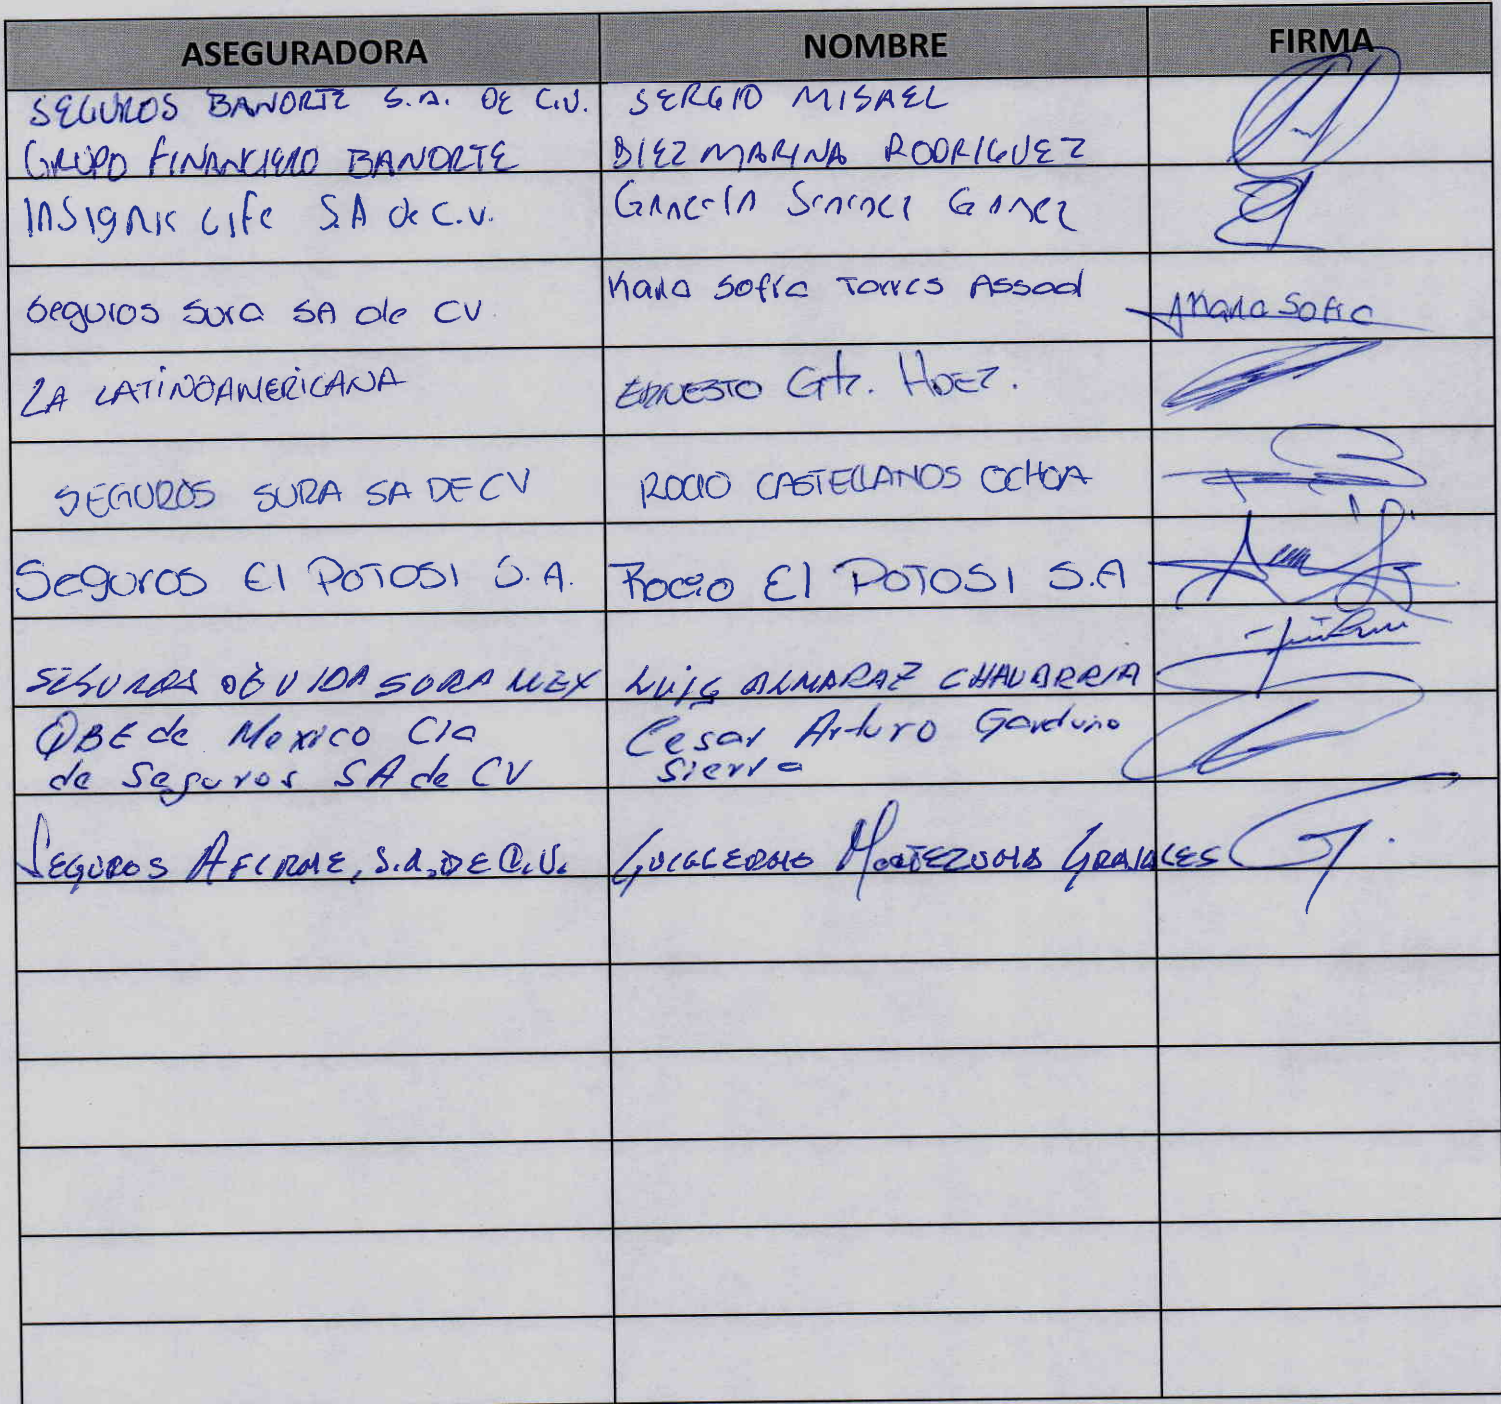 ASEGURADORA NOMBRE FIRMA
SEGUROS BANORTE S.A. DE C.V. SERGIO MISAEL
GRUPO FINANCIERO BANORTE DIEZ MARINA RODRIGUEZ
Insignia Life S.A de C.V. García
Seguros Sura SA de CV. Sofía Torres Assad Sofia
LA LATINOAMERICANA ERNESTO Gtz. Hdez.
SEGUROS SURA SA DE CV ROCIO CASTELLANOS OCHOA
Seguros El POTOSI S.A. Rocio El POTOSI S.A
SEGUROS DE VIDA SURA MEX LUIS ALMARAZ CHAVARRIA
QBE de Mexico Cia Cesar Arturo Garduño
de Seguros SA de CV Sierra
SEGUROS AFIRME, S.A. DE C.V. GUILLERMO MOCTEZUMA GRAJALES